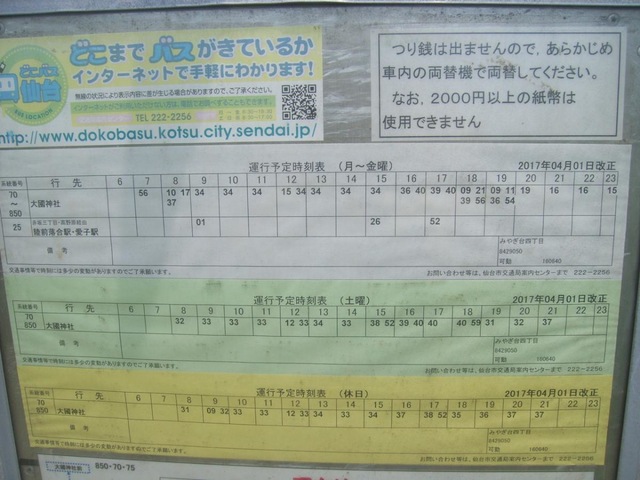 どこまでバスがきているか
インターネットで手軽にわかります!
どこバス
仙台
TEL 222-2256
http://www.dokobasu.kotsu.city.sendai.jp/
つり銭は出ませんので,あらかじめ
車内の両替機で両替してください。
なお,2000円以上の紙幣は
使用できません
運行予定時刻表 (月~金曜) 2017年04月01日改正
系統番号 行先 6 7 8 9 10 11 12 13 14 15 16 17 18 19 20 21 22 23
70 ~ 850 大國神社 56 10 17 34 34 34 15 34 34 34 34 36 40 39 40 09 21 09 11 19 16 16 15
37 39 56 36 54
25 陸前落合駅・愛子駅 01 26 52
備考 みやぎ台四丁目
8429050
可動 160640
交通事情等で時刻には多少の変動がありますのでご了承願います。 お問い合わせ等は、仙台市交通局案内センターまで 222-2256
運行予定時刻表 (土曜) 2017年04月01日改正
系統番号 行先 6 7 8 9 10 11 12 13 14 15 16 17 18 19 20 21 22 23
70 850 大國神社 32 33 33 33 12 33 34 34 33 38 52 39 40 40 40 59 31 32 37
備考 みやぎ台四丁目
8429050
可動 160640
交通事情等で時刻には多少の変動がありますのでご了承願います。 お問い合わせ等は、仙台市交通局案内センターまで 222-2256
運行予定時刻表 (休日) 2017年04月01日改正
系統番号 行先 6 7 8 9 10 11 12 13 14 15 16 17 18 19 20 21 22 23
70 850 大國神社 31 09 32 33 33 12 33 34 33 34 37 38 52 35 36 37 37
備考 みやぎ台四丁目
8429050
交通事情等で時刻には多少の変動がありますのでご了承願います。 お問い合わせ等は、仙台市交通局案内センターまで 222-2256
大國神社前 850・70・75